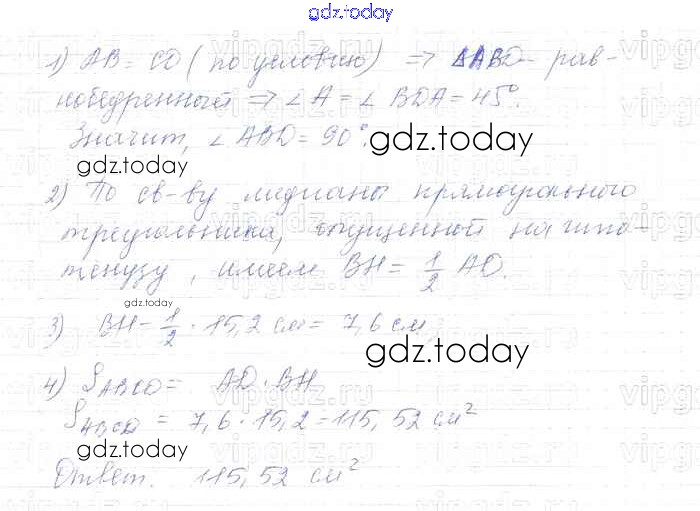 gdz.today
1) AB = CD (по условию) => ΔABD - рав-
нобедренный => ∠A = ∠BDA = 45°.
Значит, ∠ABD = 90°.
gdz.today
gdz.today
2) По св-ву медианы прямоугольного
треугольника, опущенной на гипо-
тенузу, имеем BH = 1/2 AD.
gdz.today
3) BH = 1/2 · 15,2 см = 7,6 см
gdz.today
4) S ABCD = AD · BH
S ABCD = 7,6 · 15,2 = 115,52 см²
gdz.today
gdz.today
Ответ. 115,52 см²